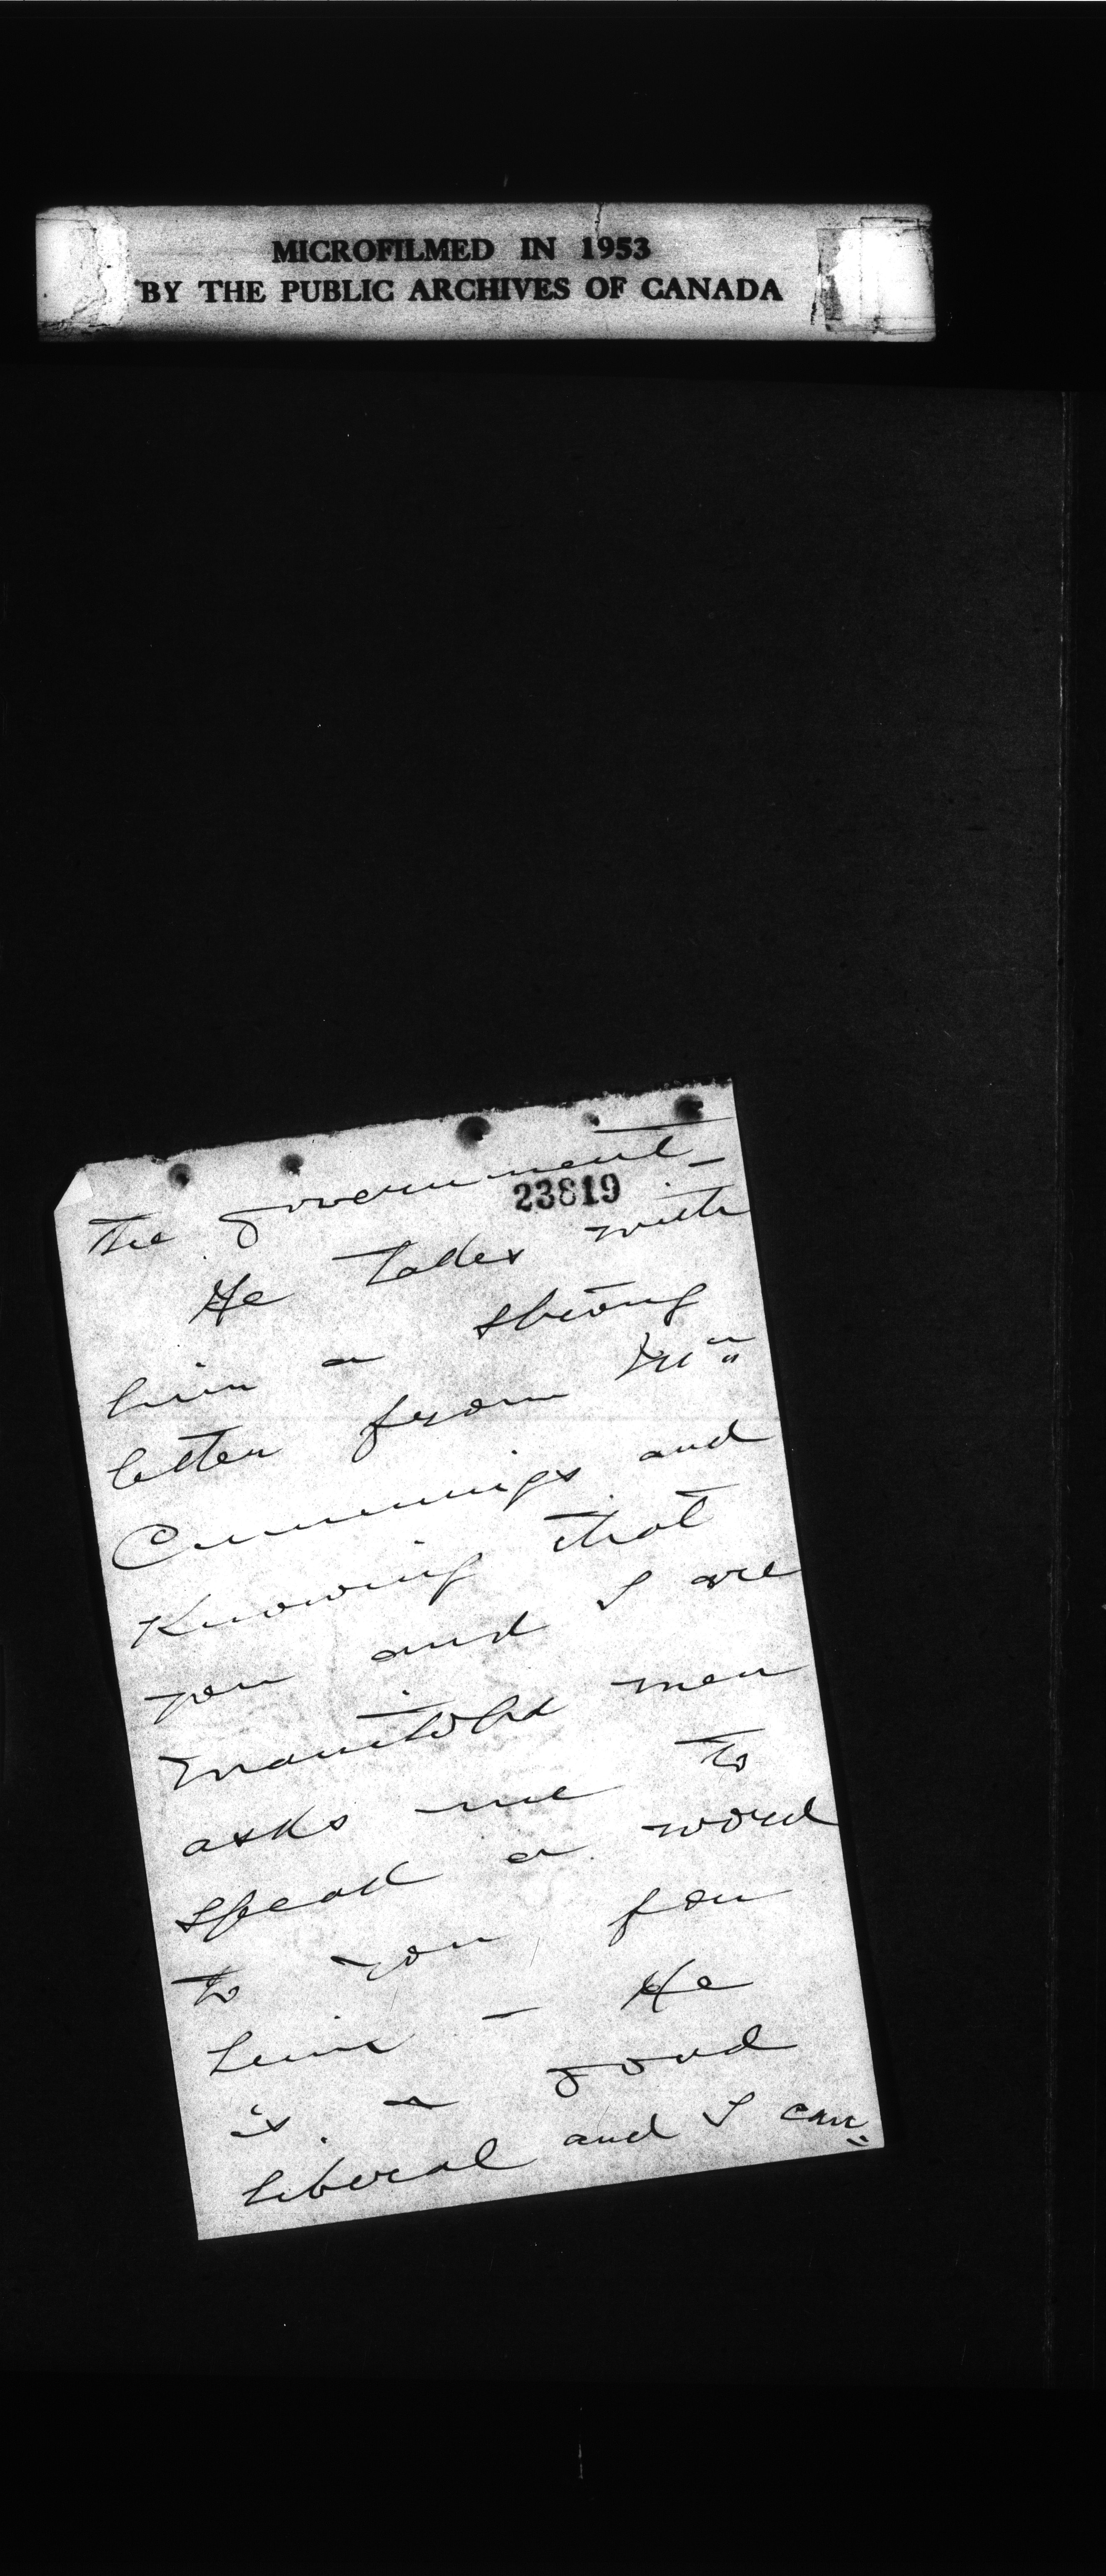 MICROFILMED IN 1953
BY THE PUBLIC ARCHIVES OF CANADA
The government –
23819
He takes with
him a strong
letter from Mr
Cummings and
Knowing that
you and I are
Manitoba men
asks me to
speak a word
to you for
him – He
is a good
liberal and I can